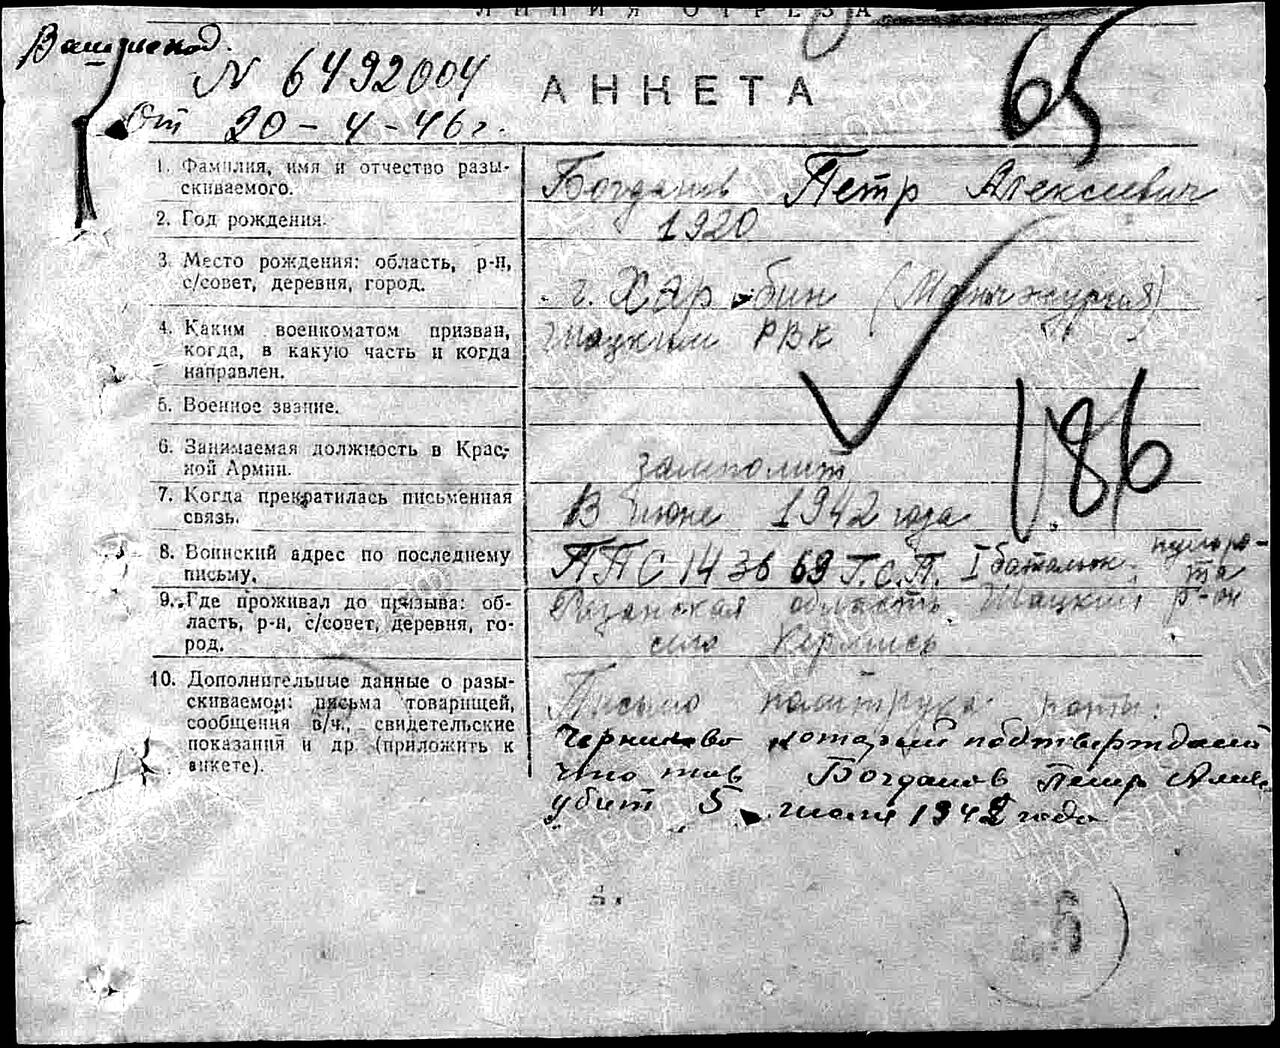 ЛИНИЯ ОТРЕЗА
Ваш исход.
N 6492004
От 20-4-46г.
АНКЕТА
65
1. Фамилия, имя и отчество разы-
скиваемого.
Богданов Петр Алексиевич
2. Год рождения.
1920
3. Место рождения: область, р-н,
с/совет, деревня, город.
г. Харбин (Маньчжурия)
4. Каким военкоматом призван,
когда, в какую часть и когда
направлен.
Шацким РВК
5. Военное звание.
186
6. Занимаемая должность в Крас-
ной Армии.
замполит
7. Когда прекратилась письменная
связь.
В июне 1942 года
8. Воинский адрес по последнему
письму.
ППС 1436 69 Г.С.П. I батальон пульро-
та
9. Где проживал до призыва: об-
ласть, р-н, с/совет, деревня, го-
род.
Рязанская область Шацкий р-он
село Кермись
10. Дополнительные данные о разы-
скиваемом: письма товарищей,
сообщения в/ч., свидетельские
показания и др (приложить к
анкете).
Письмо политрука роты:
который подтверждает
что тов Богданов Петр Алек
убит 5 июля 1942 года